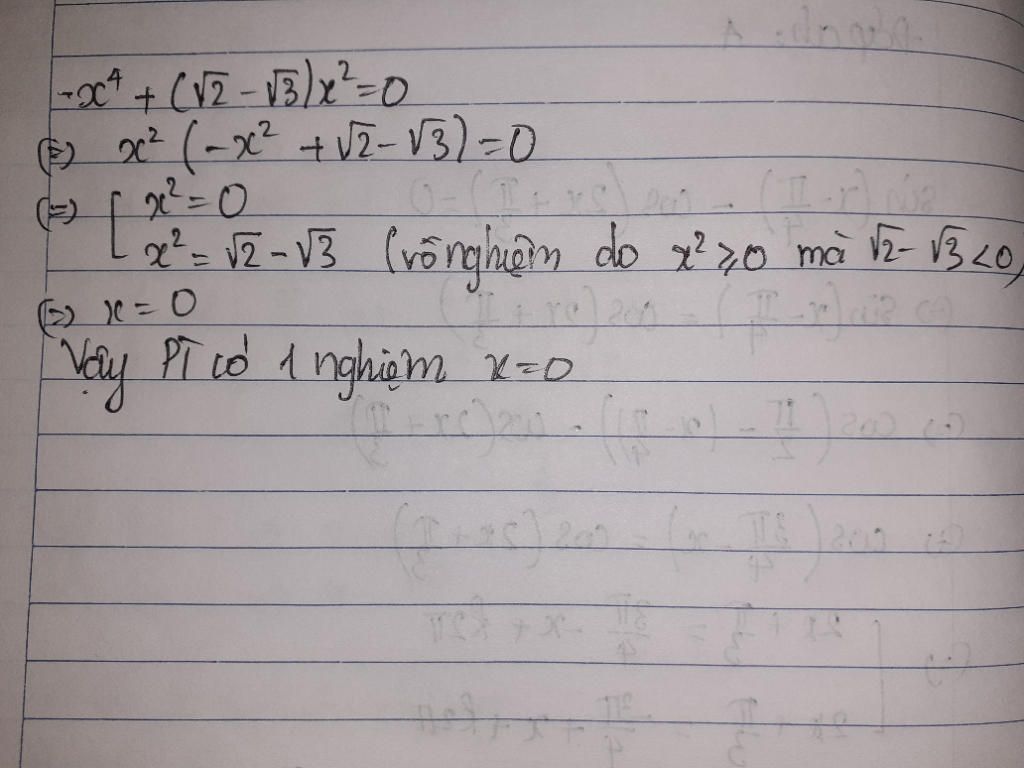 -x⁴ + (√2 - √3)x² = 0
(=) x² (-x² + √2 - √3) = 0
(=) [ x² = 0
x² = √2 - √3 (vô nghiệm do x² ⩾ 0 mà √2 - √3 < 0)
(=) x = 0
Vậy PT có 1 nghiệm x = 0